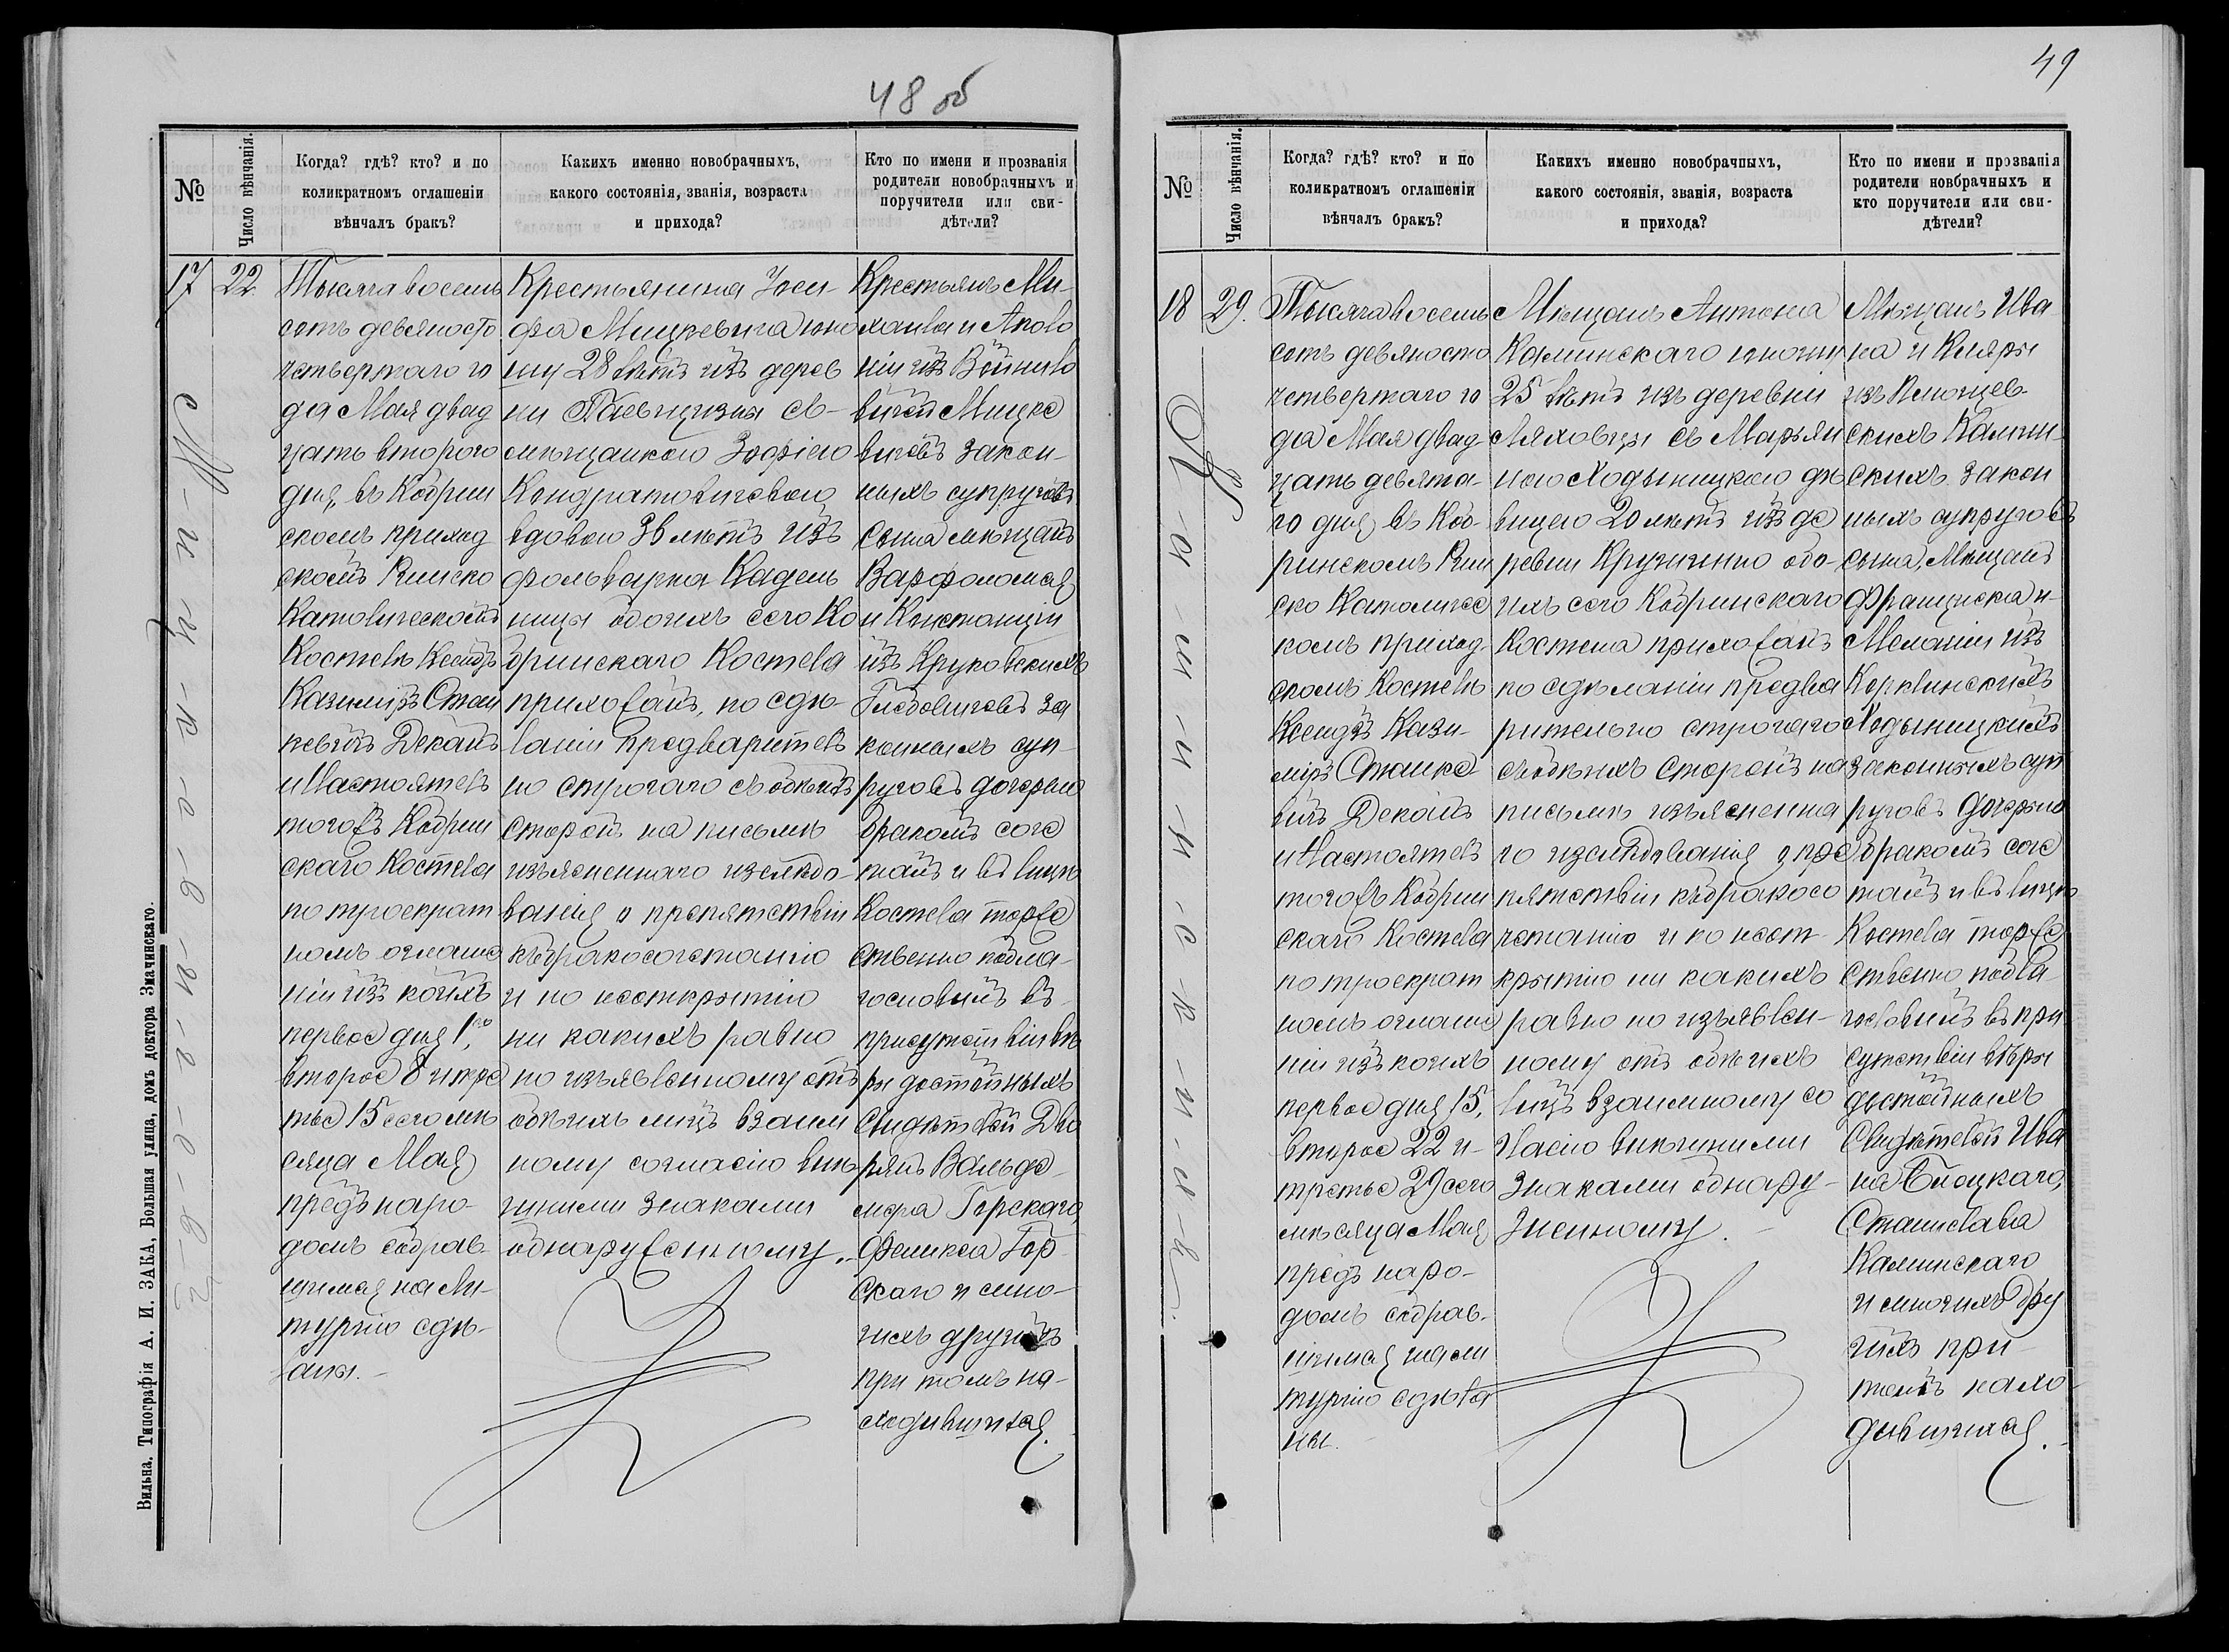 48 об
№
Число вѣнчанія.
Когда? гдѣ? кто? и по
коликратномъ оглашеніи
вѣнчалъ бракъ?
Какихъ именно новобрачныхъ,
какого состоянія, званія, возраста
и прихода?
Кто по имени и прозванія
родители новобрачныхъ и
поручители или сви-
дѣтели?
17
22.
Тысяча восемь
сотъ девяносто
четвертаго го
да Мая двад
цать второго
дня, въ Кобрин
скомъ приход
скомъ Римско
Католическомъ
Костелѣ Ксендзъ
Казиміръ Стан
кевичъ Деканъ
и Настоятель
тогожъ Кобрин
скаго Костела
по троекрат
номъ оглаше
ніи изъ коихъ
первое дня 1го,
второе 8 и тре
тье 15 сего мѣ
сяца Мая
предъ наро-
домъ собрав-
шимся на Ли-
тургію сдѣ-
ланы.-
Крестьянина Іоси-
фа Мицкевича юно
шу 28 лѣтъ изъ дерев
ни съ-
мѣщанкою Зофіею
Кондратовичевою
вдовою 36 лѣтъ изъ
фольварка Кадель
ницы обоихъ сего Ко
бринскаго Костела
прихожанъ, по сдѣ-
ланіи предваритель
но строгаго съ обѣихъ
сторонъ на письмѣ
изъясненнаго изслѣдо-
ванія о препятствіи
къ бракосочетанію
и по неоткрытію
ни какихъ равно
по изъявленному отъ
обѣихъ лицъ взаим
ному согласію внѣ
шними знаками
обнаруженному.-
Крестьянъ Ми-
хаила и Аполо
ніи изъ Войнило
вичей Мицке
вичевъ закон-
ныхъ супруговъ
сына мѣщанъ
Варфоломея
и Констанціи
изъ Круковскихъ
Глебовичевъ за
конныхъ суп-
руговъ дочерью
бракомъ соче
талъ и въ лицѣ
Костела торже
ственно побла-
гословилъ въ
присутствіи вѣ
ры достойныхъ
Свидѣтелей Дво
рянъ Вальде-
мара Горскаго,
Феликса Гор-
скаго и мно-
гихъ другихъ
при томъ на-
ходившихся.
М-и-ц-к-е-в-и-ч-е-в-ъ
Вильна. Типографія А. И. ЗАКА, Большая улица, домъ доктора Змачинскаго.
49
№
Число вѣнчанія.
Когда? гдѣ? кто? и по
коликратномъ оглашеніи
вѣнчалъ бракъ?
Какихъ именно новобрачныхъ,
какого состоянія, званія, возраста
и прихода?
Кто по имени и прозванія
родители новбрачныхъ и
кто поручители или сви-
дѣтели?
18
29.
Тысяча восемь
сотъ девяносто
четвертаго го
да Мая двад-
цать девята-
го дня, въ Коб-
ринскомъ Рим
ско Католичес
комъ приход-
скомъ Костелѣ
Ксендзъ Кази-
міръ Станке
вичъ Деканъ
и Настоятель
тогожъ Кобрин
скаго Костела
по троекрат
номъ оглаше
ніи изъ коихъ
первое дня 15,
второе 22 и-
третье 29 сего
мѣсяца Мая
предъ наро-
домъ собрав-
шимся на ли
тургію сдѣла
ны.
Мѣщанъ Антона
Калинскаго юношу
25 лѣтъ изъ деревни
Ляховцы съ Марьян
ною Ходыницкою дѣ
вицею 20 лѣтъ изъ де
ревни обо-
ихъ сего Кобринскаго
Костела прихожанъ
по сдѣланіи предва
рительно строгаго
съ обѣихъ сторонъ на
письмѣ изъясненна
го изслѣдованія о пре
пятствіи къ бракосо
четанію и по неот-
крытію ни какихъ
равно по изъявлен-
ному отъ обѣихъ
лицъ взаимному со
гласію внѣшними
знаками обнару-
женному.-
Мѣщанъ Ива
на и Кляры
скихъ Калин-
скихъ закон
ныхъ супруговъ
сына, Мѣщанъ
Францишка и
Меланіи изъ
Ходыницкихъ
законныхъ суп
руговъ дочерью
бракомъ соче
талъ и въ лицѣ
Костела торже
ственно побла-
гословилъ въ при
сутствіи вѣры
достойныхъ
Свидѣтелей Ива
на
Станислава
Калинскаго
и многихъ дру
гихъ при
томъ нахо-
дившихся.-
К-а-л-и-н-с-к-и-х-ъ